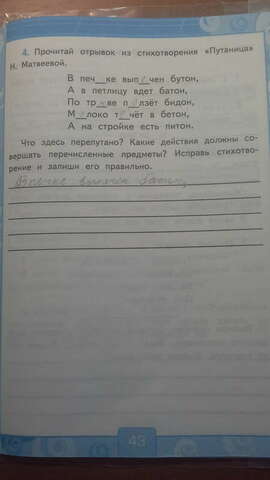 4. Прочитай отрывок из стихотворения «Путаница»
Н. Матвеевой.
В печке выпечен бутон,
А в петлицу вдет батон,
По траве ползёт бидон,
Молоко течёт в бетон,
А на стройке есть питон.
Что здесь перепутано? Какие действия должны со-
вершать перечисленные предметы? Исправь стихотво-
рение и запиши его правильно.
В печке выпечен батон,
43